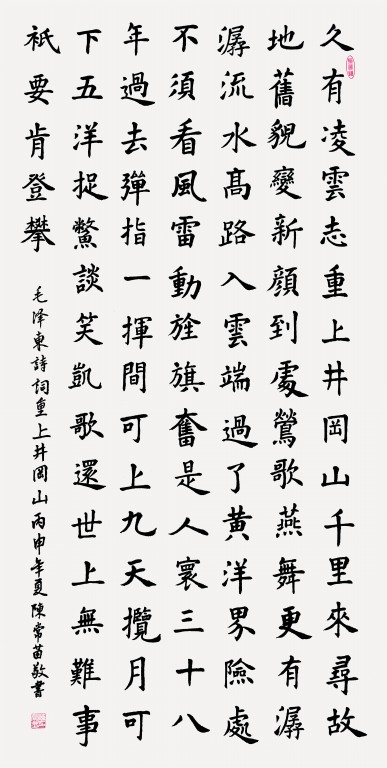 久有凌雲志重上井岡山千里來尋故
地舊貌變新顔到處鶯歌燕舞更有潺
潺流水髙路入雲端過了黄洋界險處
不須看風雷動旌旗奮是人寰三十八
年過去彈指一揮間可上九天攬月可
下五洋捉鱉談笑凱歌還世上無難事
衹要肯登攀
毛泽東詩詞重上井岡山丙申年夏陳常苗敬書